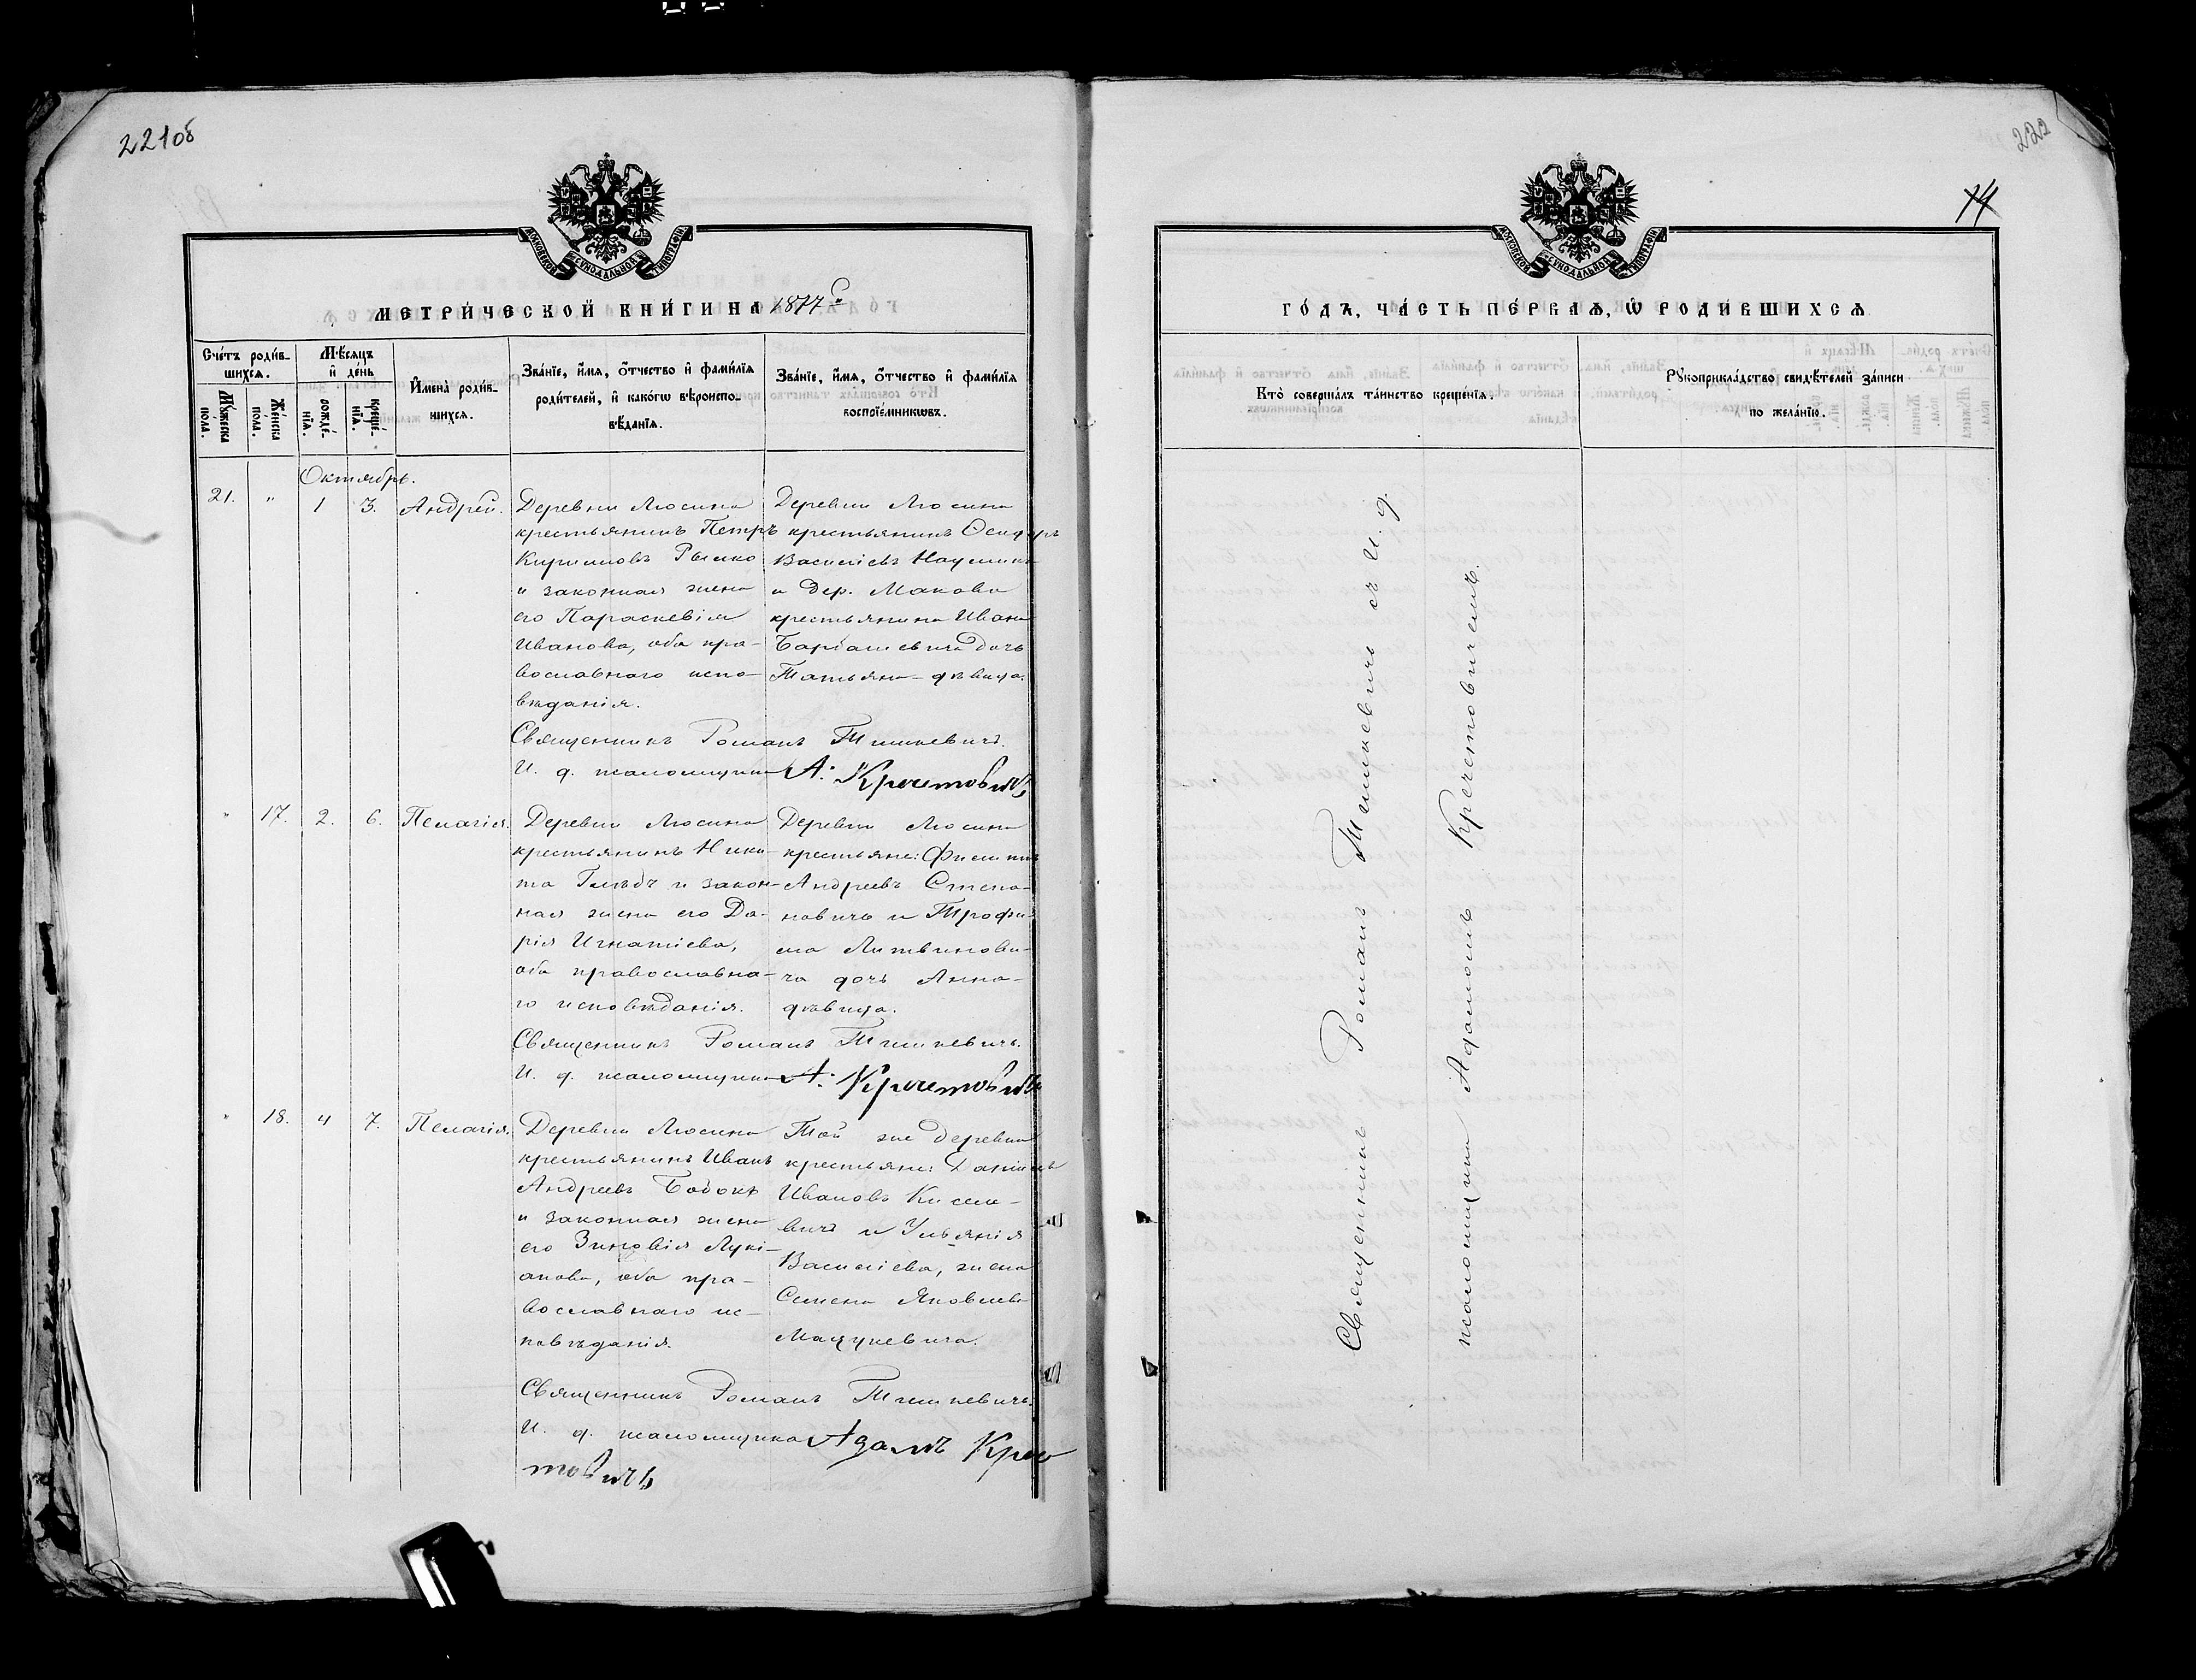 221об
МОСКОВСКОЙ СѴНОДАЛЬНОЙ ТИПОГРАФІИ
МЕТРИ́ЧЕСКОЙ КНИ́ГИ НА 1877 й
Сче́тъ роди́в-
шихсѧ.
Мѣ́сѧцъ
и҆ де́нь
Му́жеска
по́ла.
Же́нска
по́ла.
рожде́-
нїѧ.
креще́-
нїѧ.
И҆мена̀ роди́в-
шихсѧ.
Зва́нїе, и҆́мѧ, ѻ҆́тчество и҆ фами́лїѧ
роди́телей, и҆ како́гѡ вѣроиспо-
вѣ́данїѧ.
Зва́нїе, и҆́мѧ, ѻ҆́тчество и҆ фами́лїѧ
воспрїе́мникѡвъ.
Октябрь.
21. " 1 3. Андрей.
Деревни Люсина
крестьянинъ Петръ
Кириловъ Рылко
и законная жена
его Параскевія
Иванова, оба пра-
вославнаго испо-
вѣданія.
Деревни Люсина
крестьянинъ
Василіевъ
и дер. Макова
крестьянина Ивана
дочь
Татьяна - дѣвица.
Священникъ Романъ Тышкевичъ.
И. д. псаломщика А. Кречетовичъ
" 17. 2. 6. Пелагія.
Деревни Люсина
крестьянинъ Ники-
та Глѣбъ и закон-
ная жена его Да-
рія Игнатіева,
оба православна-
го исповѣданія.
Деревни Люсина
крестьяне: Филиппъ
Андреевъ Степа-
новичъ и Трофи-
ма Литвинови-
ча дочь Анна -
дѣвица.
Священникъ Романъ Тышкевичъ.
И. д. псаломщика А. Кречетовичъ
" 18. 4 7. Пелагія.
Деревни Люсина
крестьянинъ Иванъ
Андреевъ Бобокъ
и законная жена
его Зиновія Лукі-
анова, оба пра-
вославнаго ис-
повѣданія.
Той же деревни
крестьяне: Даніилъ
Ивановъ Кисле-
вичъ и Ульянія
Василіева, жена
Семена Яковлева
Мацукевича.
Священникъ Романъ Тышкевичъ.
И. д. псаломщика Адамъ Крече
товичъ
222
14
МОСКОВСКОЙ СѴНОДАЛЬНОЙ ТИПОГРАФІИ
ГО́ДЪ, ЧА́СТЬ ПЕ́РВАѦ, Ѡ҆ РОДИ́ВШИХСѦ
Кто̀ соверша́лъ та́инство креще́нїѧ.
Рꙋкоприкла́дство свидѣ́телей за́писи
по жела́нїю.
Священникъ Романъ Тышкевичъ съ И. д.
псаломщика Адамомъ Кречетовичемъ.